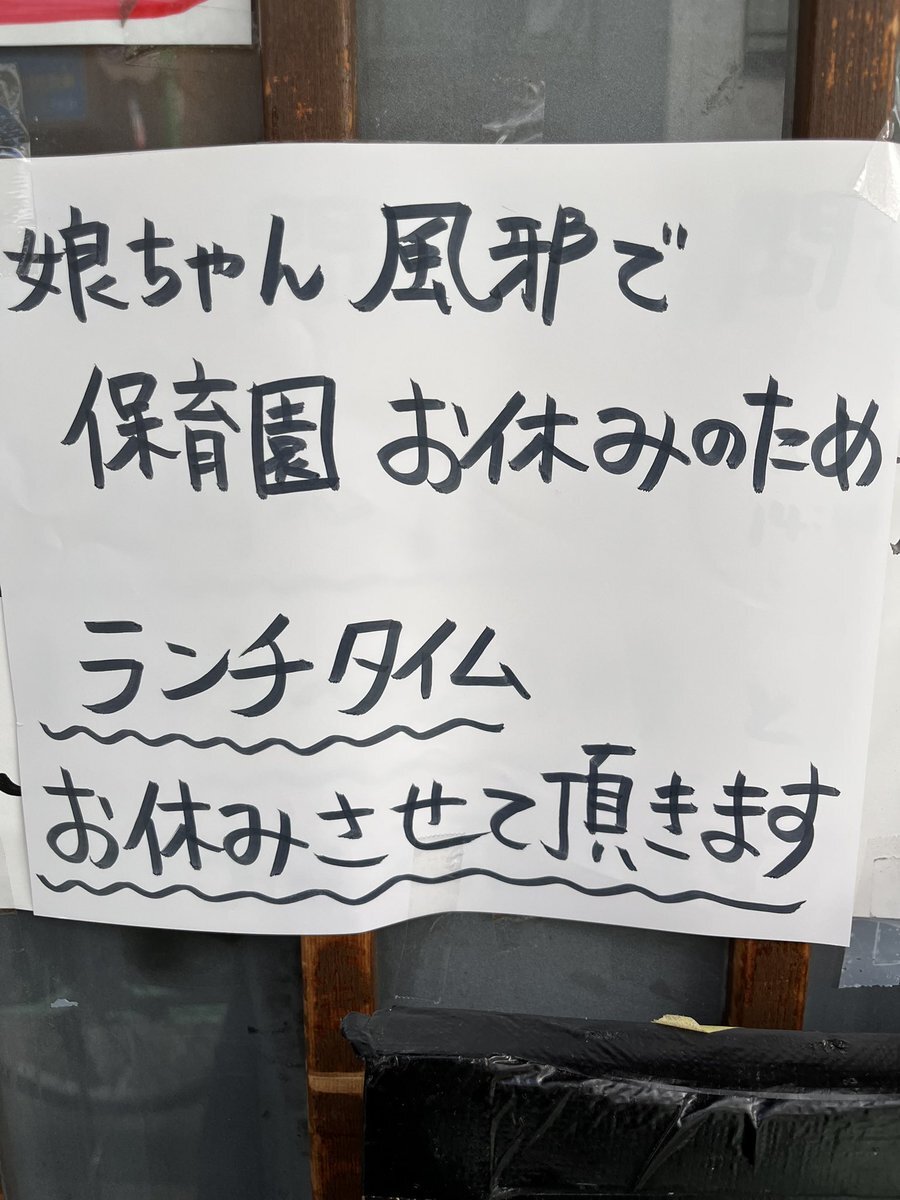 娘ちゃん 風邪で
保育園 お休みのため
ランチタイム
お休みさせて頂きます